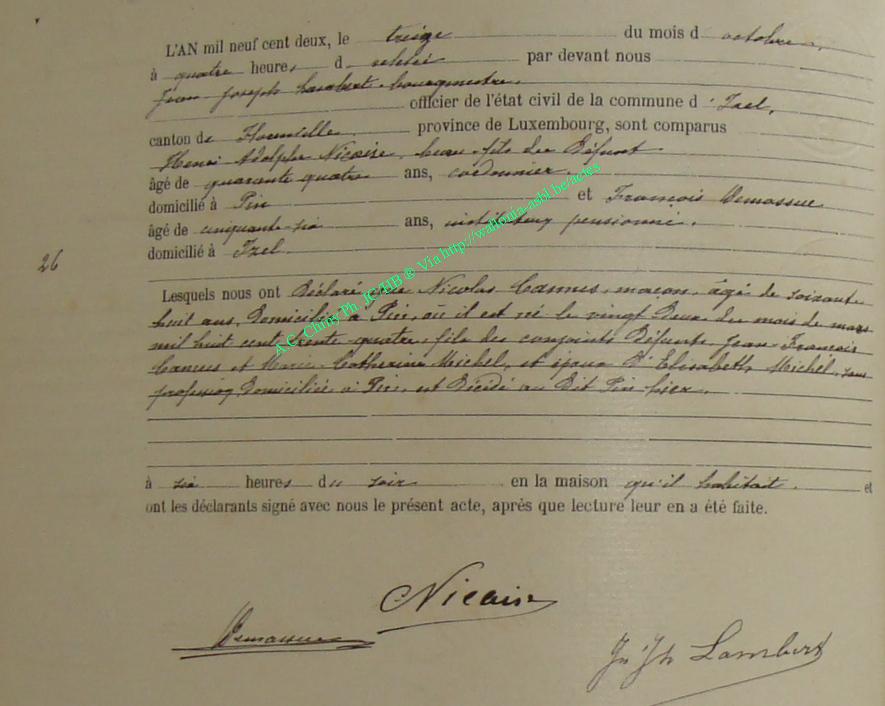 L'AN mil neuf cent deux, le treize du mois d octobre,
à quatre heures d relevée par devant nous
Jean Joseph Lambert, bourgmestre,
officier de l'état civil de la commune d'Izel,
canton de Florenville province de Luxembourg, sont comparus
Henri Adolphe Nicaise, beau-fils du défunt
âgé de quarante quatre ans, cordonnier
domicilié à Pin et François Demasse
âgé de cinquante six ans, instituteur pensionné,
domicilié à Izel
26
Lesquels nous ont déclaré que Nicolas Cannes, maçon, âgé de soixante
huit ans, domicilié à Pin, où il est né le vingt deux du mois de mars
mil huit cent trente quatre, fils des conjoints défunts Jean François
Cannes et Marie Catherine Michel, et époux d'Elisabeth Michel, sans
profession domiciliée à Pin, est décédé au dit Pin hier,
à six heures du soir en la maison qu'il habitait. et
ont les déclarants signé avec nous le présent acte, après que lecture leur en a été faite.
Nicaise
Demasse
Jn Jh Lambert
A.C. Chiny Ph. JC/HB ® Via http://wallonia-asbl.be/actes